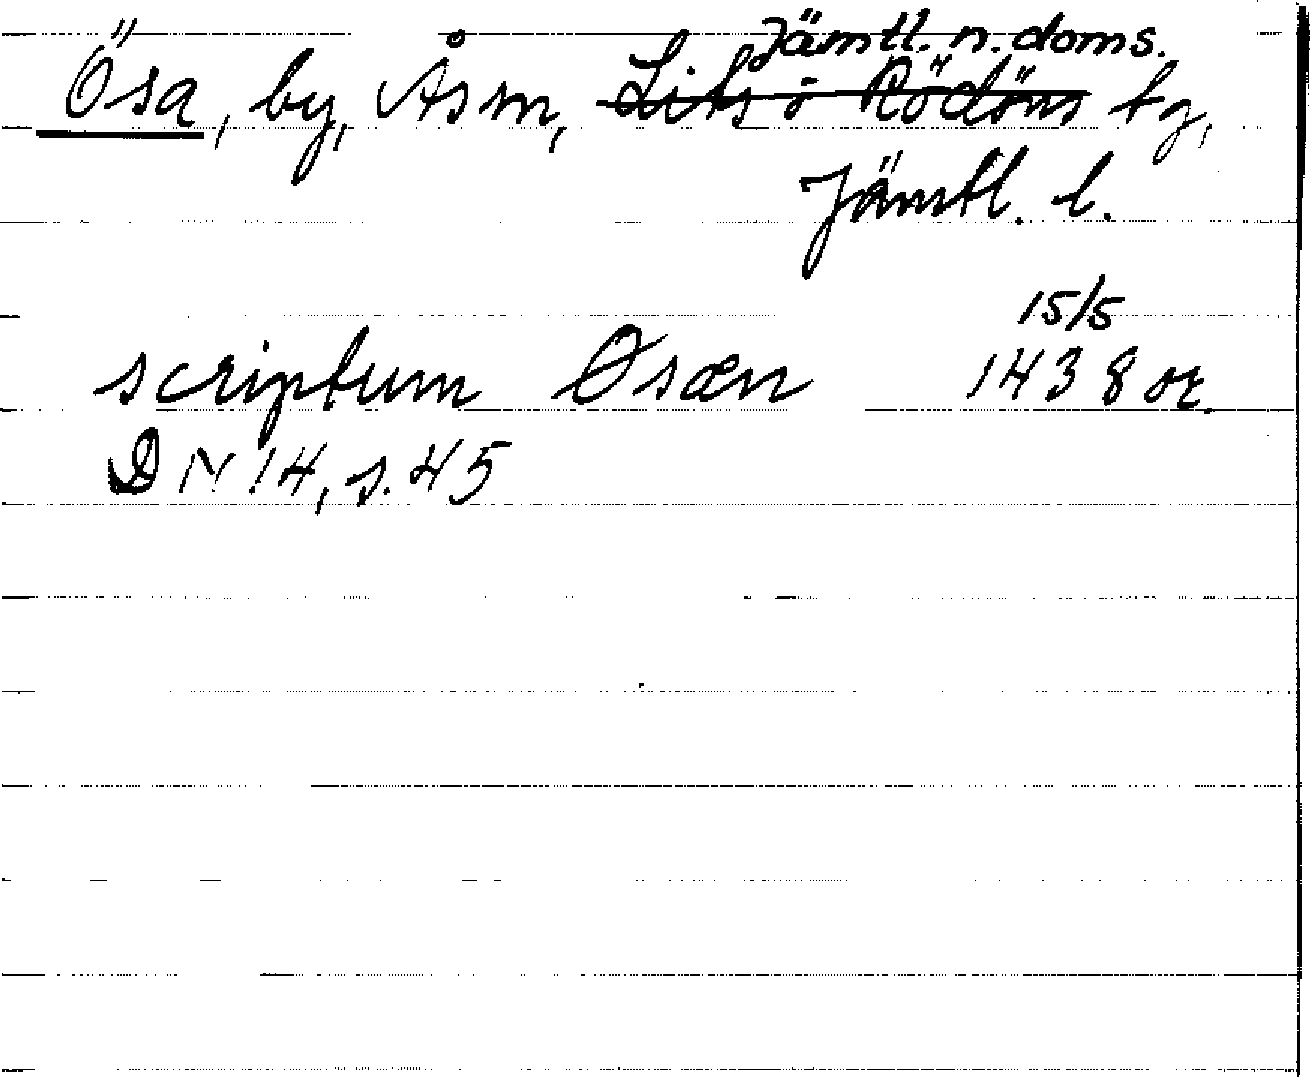 Jämtl. n. doms.
Ösa, by, Ås sn, Lits o Rödöns tg,
Jämtl. l.
15/5
scriptum Øsæn 1438 or.
DN 14, s. 45